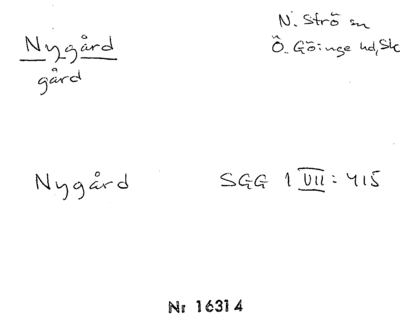 Nygård
gård
N. Strö sn
Ö. Göinge hd, Sk
Nygård
SGG 1 VII: 415
Nr 16314